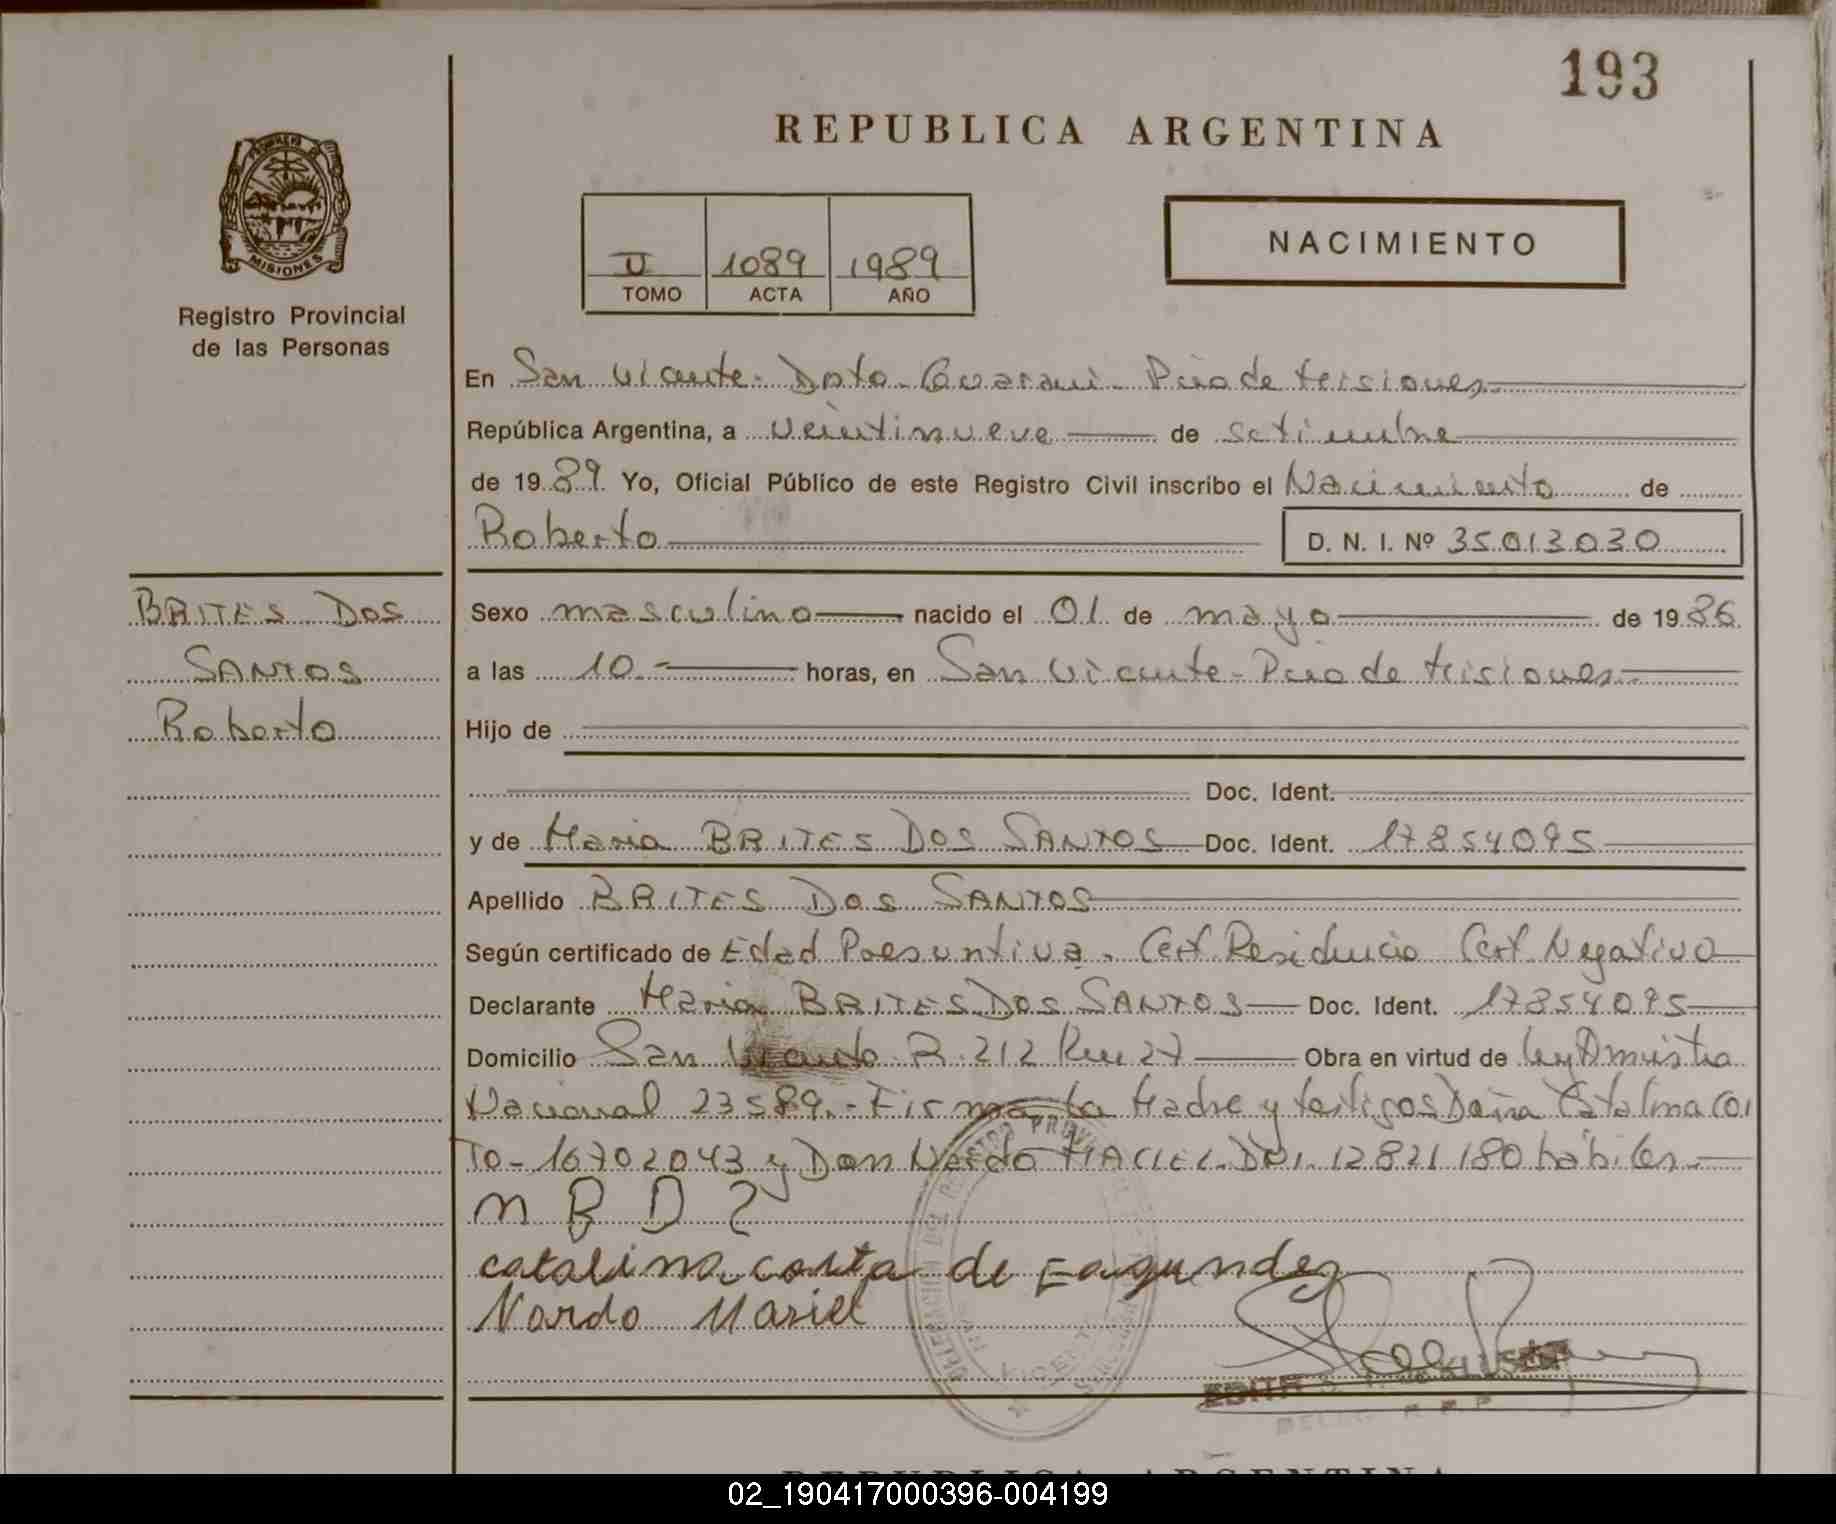 193
REPUBLICA ARGENTINA
MISIONES
Registro Provincial
de las Personas
II 1089 1989
TOMO ACTA AÑO
NACIMIENTO
En San Vicente - Dpto. Guaraní - Pcia de Misiones
República Argentina, a veintinueve de setiembre
de 1989 Yo, Oficial Público de este Registro Civil inscribo el Nacimiento de
Roberto D. N. I. Nº 35013030
BRITES DOS
SANTOS
Roberto
Sexo masculino nacido el 01 de mayo de 1986
a las 10.- horas, en San Vicente - Pcia de Misiones
Hijo de
Doc. Ident.
y de Maria BRITES DOS SANTOS Doc. Ident. 17854095
Apellido BRITES DOS SANTOS
Según certificado de Edad Presuntiva. Cert. Residencia Cert. Negativo
Declarante Maria BRITES DOS SANTOS Doc. Ident. 17854095
Domicilio San Vicente R. 212 Km 27 Obra en virtud de Ley Amnistia
Nacional 23589.- Firma La Madre y testigos Doña Catalina COR
TO - 16702043 y Don Nardo MACIEL DNI. 12821180 habiles.-
m B D S
catalina de Fagundez
Nardo Masiel
EDITH
DELEG. R. P. P.
REPUBLICA ARGENTINA
02_190417000396-004199